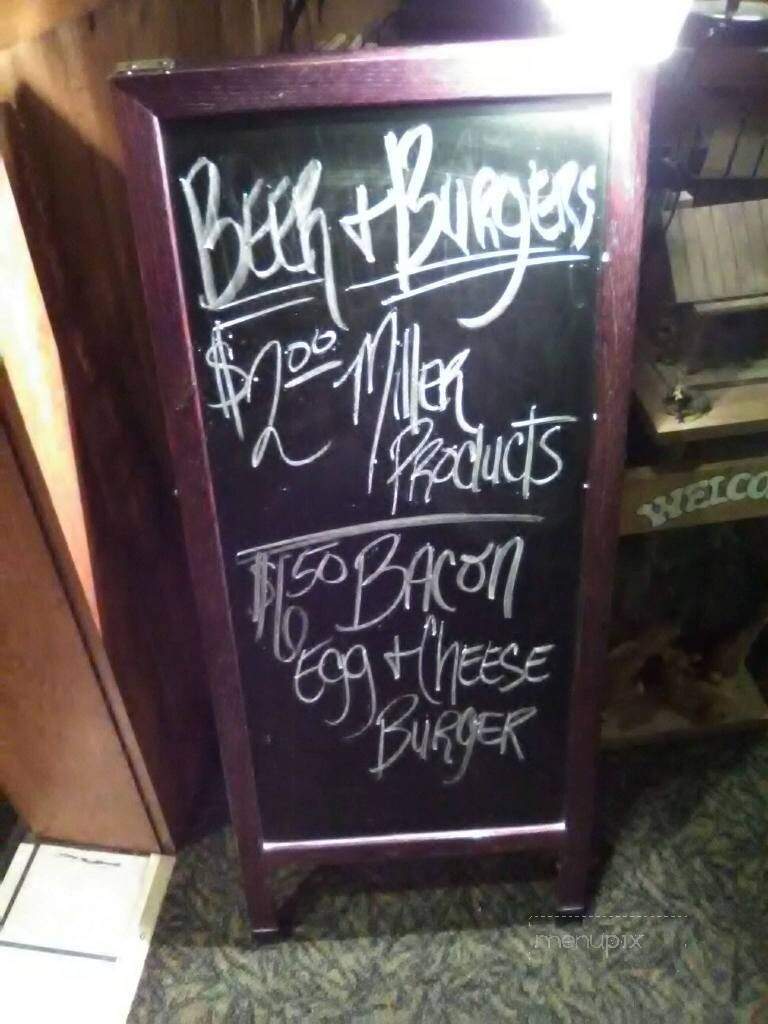 BEER + BURGERS
$2.00 Miller
Products
$6.50 BACON
Egg + CHEESE
BURGER
WELCO
menupix